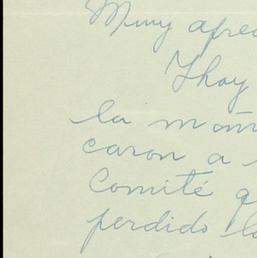 Muy aprec
Hoy
la mañ
caron a
Comité q
perdido la